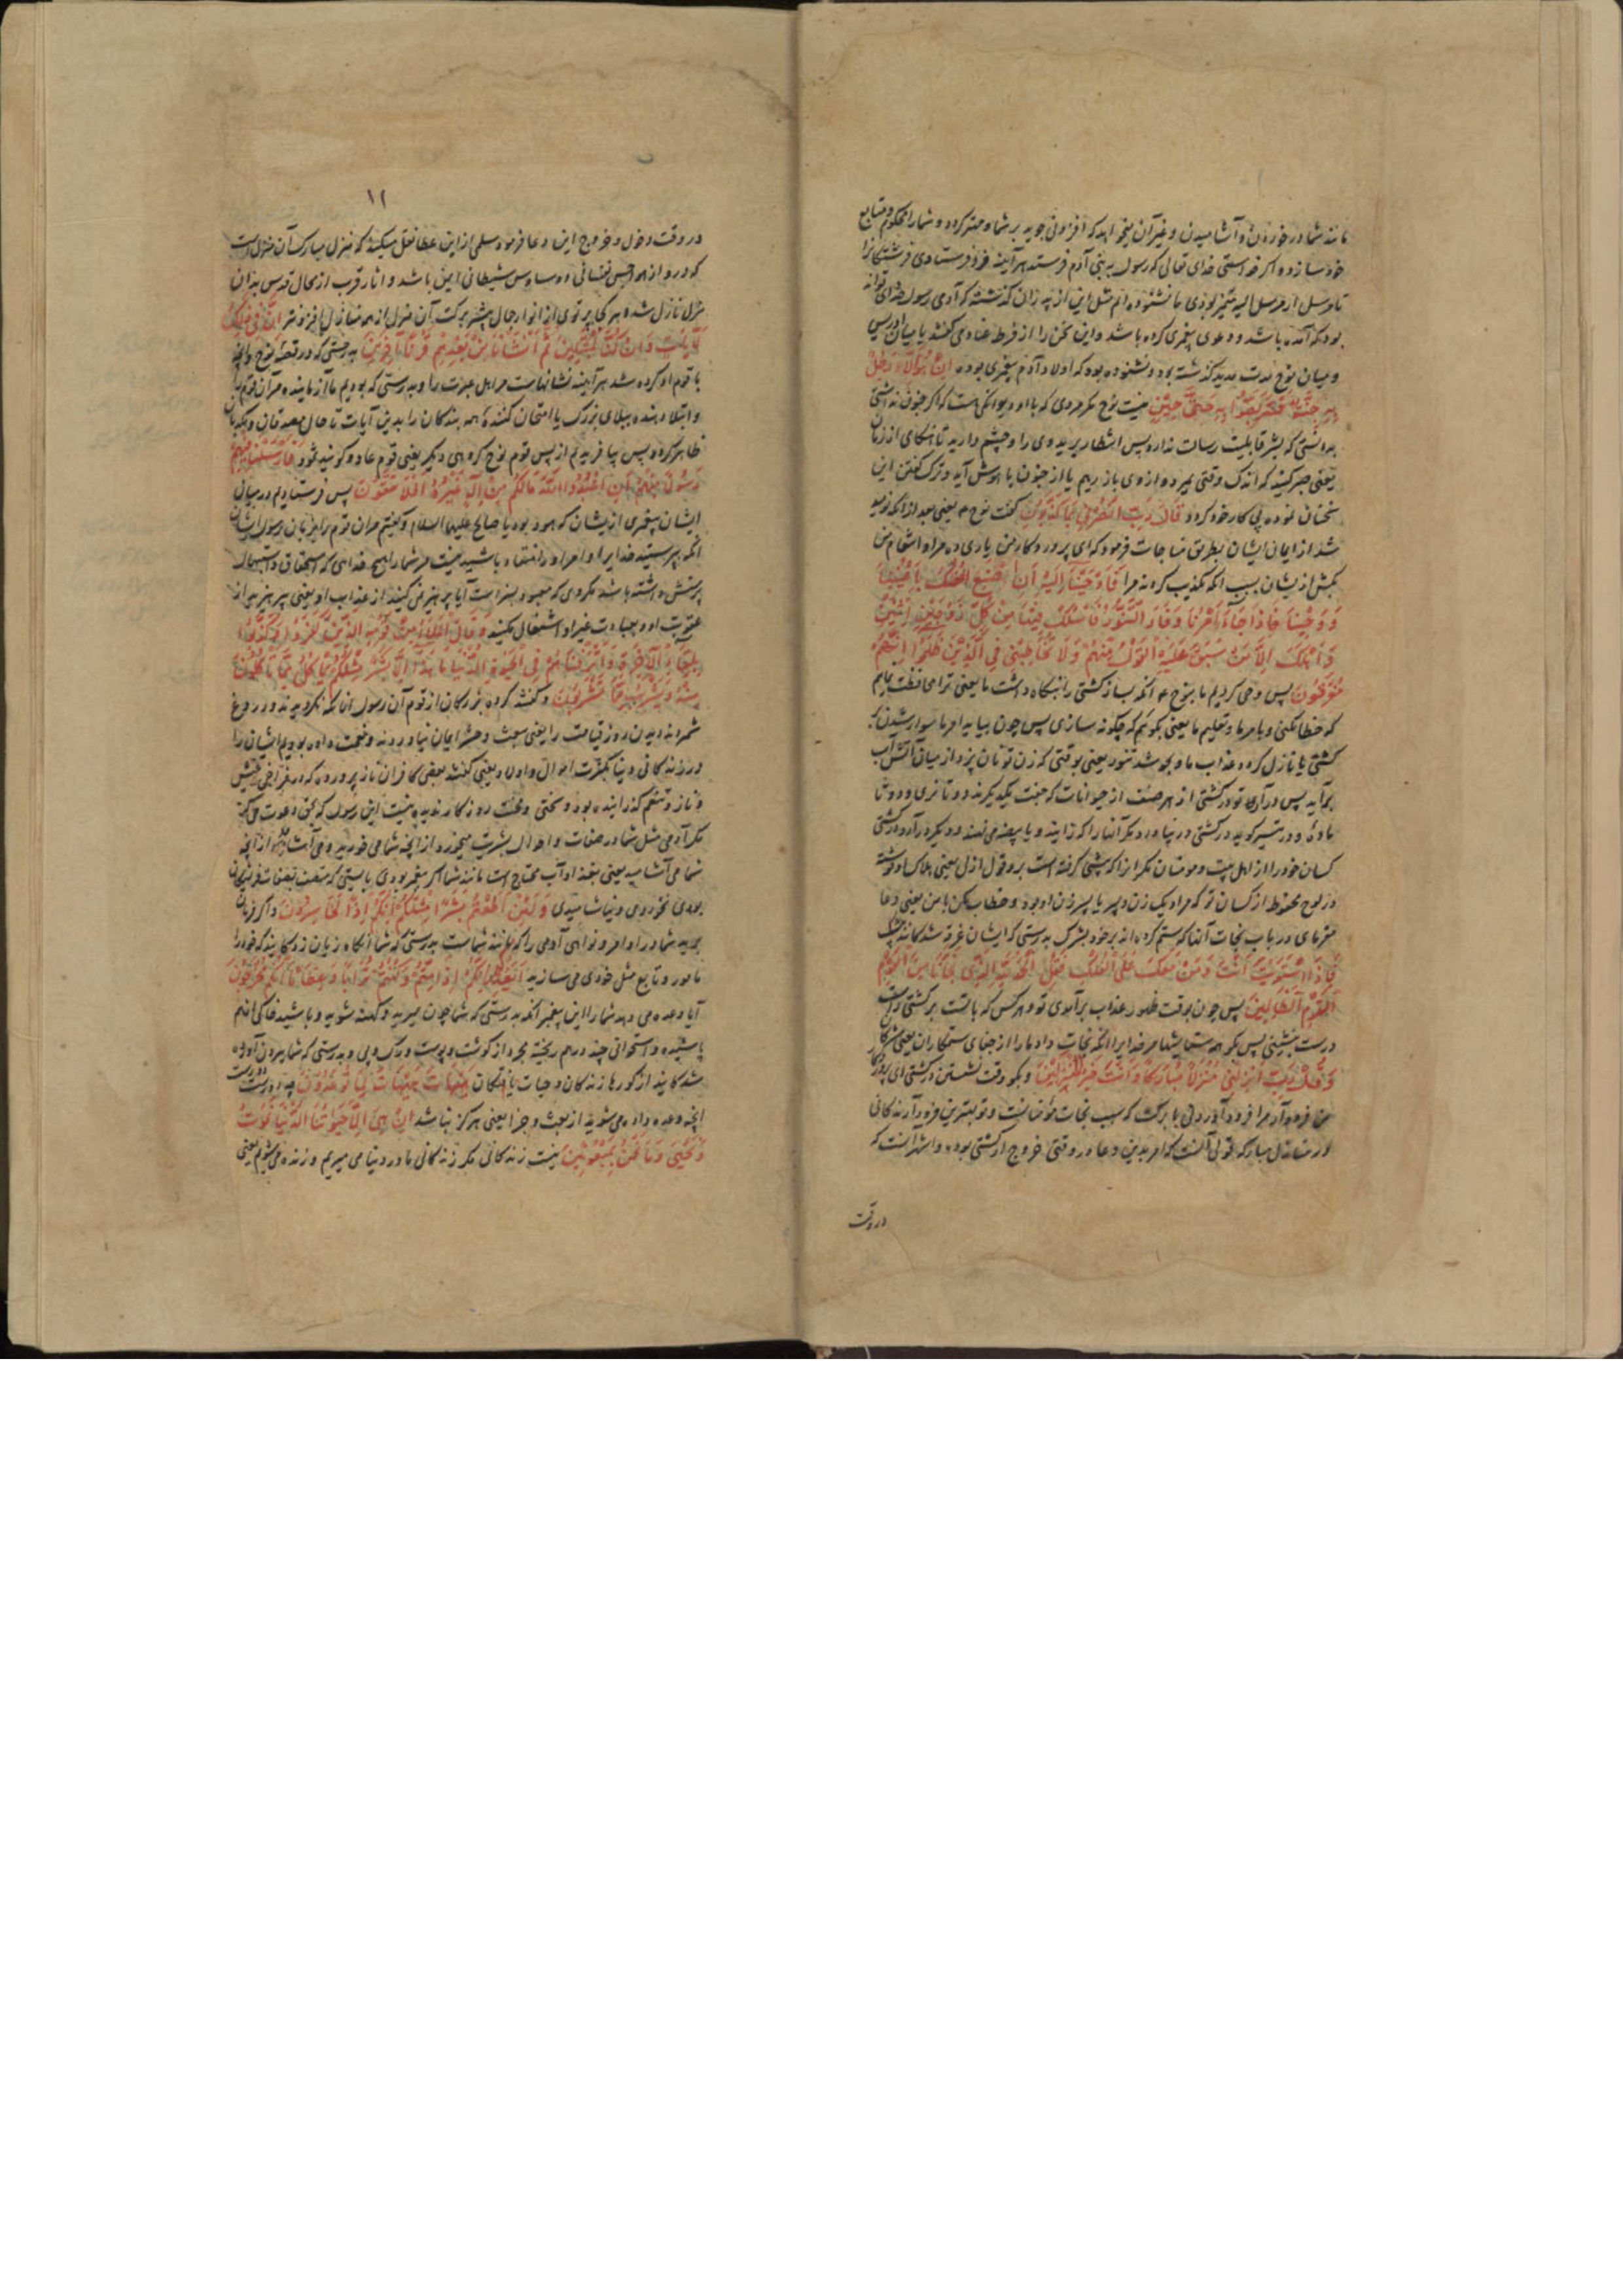 مانند شما در خوردن و آشامیدن و غیر آن میخواهد که افزونی جوید بر شما و مهتر کرده و شما را محکوم و متابع
خود سازد و اگر خواستی خدای تعالی که رسول به بنی آدم فرستد هر آینه فرو فرستادی فرشتگانرا
تا مرسل از مرسل الیه متمیز بودی ما نشنوده‌ایم مثل این از پدران گذشته که آدمی رسول خدای تواند
بود که آمده باشد و دعوی پیغمبری کرده باشد و این سخن را از فرط عناد می‌گفتند یا میان ادریس
و میان نوح مدت مدید گذشته بود و نشنوده بوده که اولاد آدم پیغمبری بوده اِنْ هُوَ اِلَّا رَجُلٌ
بِهِ جِنَّةٌ فَتَرَبَّصُوا بِهِ حَتّٰی حِینٍ نیست نوح مگر مردی که با او دیوانگی است که اگر جنون نداشتی
بدانستی که بشر قابلیت رسالت ندارد پس انتظار برید وی را و چشم دارید تا هنگامی از زمان
یعنی صبر کنید که اندک وقتی بمیرد و از وی باز رهیم یا از جنون با هوش آید و ترک گفتن این
سخنان نموده پی کار خود گیرد قَالَ رَبِّ انْصُرْنِی بِمَا کَذَّبُونِ گفت نوح ع یعنی بعد از آنکه نومید
شد از ایمان ایشان بطریق مناجات فرمود که ای پروردگار من یاری ده مرا و انتقام من
بکش از یشان بسبب آنکه تکذیب کردند مرا فَاَوْحَیْنَا اِلَیْهِ اَنِ اصْنَعِ الْفُلْکَ بِاَعْیُنِنَا
وَوَحْیِنَا فَاِذَا جَاءَ اَمْرُنَا وَفَارَ التَّنُّورُ فَاسْلُکْ فِیهَا مِنْ کُلٍّ زَوْجَیْنِ اثْنَیْنِ
وَاَهْلَکَ اِلَّا مَنْ سَبَقَ عَلَیْهِ الْقَوْلُ مِنْهُمْ وَلَا تُخَاطِبْنِی فِی الَّذِینَ ظَلَمُوا اِنَّهُمْ
مُغْرَقُونَ پس وحی کردیم ما بنوح ع آنکه بساز کشتی را بنگاه داشت ما یعنی ترا محافظت نمایم
که خطا نکنی و بامر ما و تعلیم ما یعنی بگوئیم که چگونه سازی پس چون بیاید امر ما بسوار شدن
کشتی یا نازل کرده عذاب ما و بجوشد تنور یعنی بوقتی که زن تو نان پزد از میان آتش آب
برآید پس درآری تو در کشتی از هر صنف از حیوانات که جفت یکدیگرند دو تا نری و دو تا
ماده و در تیسیر گوید در کشتی در نیاورد مگر آنها را که زایند و یا بیضه می‌نهند و دیگر درآر در کشتی
کسان خود را از اهل بیت و مومنان مگر انرا که پیشی گرفته است برو قول ازل یعنی هلاک او نوشته
در لوح محفوظ از کسان تو که مراد یک زن و پسر یا پسر زن او بود و خطاب مکن با من یعنی دعا
مفرمای در باب نجات آنانکه ستم کرده‌اند بر خود بشرک بدرستی که ایشان غرق شدگانند
فَاِذَا اسْتَوَیْتَ اَنْتَ وَمَنْ مَعَکَ عَلَی الْفُلْکِ فَقُلِ الْحَمْدُ لِلّٰهِ الَّذِی نَجَّانَا مِنَ الْقَوْمِ
الْقَوْمِ الظَّالِمِینَ پس چون بوقت ظهور عذاب برآمدی تو و هر کس که با تست بر کشتی و راست
درست بنشینی پس بگو همه ستایشها مر خدایرا آنکه نجات داد ما را از جفای ستمکاران یعنی مشرکان
وَقُلْ رَبِّ اَنْزِلْنِی مُنْزَلًا مُبَارَکًا وَاَنْتَ خَیْرُ الْمُنْزِلِینَ و بگو وقت نشستن در کشتی ای پروردگار
من فرود آر مرا فرود آوردنی با برکت که سبب نجات مؤمنانست و تو بهترین فرود آرندگانی
در منازل مبارکه قولی آنست که امر بدین دعا در وقت خروج از کشتی بوده و اشهر آنست که
در وقت
۱۱
در وقت دخول و خروج این دعا فرموده سلمی از ابن عطا نقل میکند که منزل مبارک آن منزل است
که در و از هواجس نفسانی و وساوس شیطانی ایمن باشد و اثار قرب از محال قدس بدان
منزل نازل شده هر کجا پرتوی از انوار جمال بیشتر برکت آن منزل از همه منازل افزونتر اِنَّ فِی ذٰلِکَ
لَاٰیَاتٍ وَاِنْ کُنَّا لَمُبْتَلِینَ ثُمَّ اَنْشَاْنَا مِنْ بَعْدِهِمْ قَرْنًا اٰخَرِینَ بدرستی که در قصهٔ نوح و آنچه
با قوم او کرده شد هر آینه نشانهاست مر اهل عبرت را و بدرستی که بودیم ما آزماینده مر آن قوم را
و ابتلا دهنده ببلای بزرگ یا امتحان کننده همه بندگان را بدین آیات تا حال مصدقان و مکذبان
ظاهر گردد پس بیافریدیم از پس قوم نوح گروهی دیگر یعنی قوم عاد و گویند ثمود فَاَرْسَلْنَا فِیهِمْ
رَسُولًا مِنْهُمْ اَنِ اعْبُدُوا اللّٰهَ مَا لَکُمْ مِنْ اِلٰهٍ غَیْرُهُ اَفَلَا تَتَّقُونَ پس فرستادیم در میان
ایشان پیغمبری از یشان که هود بود یا صالح علیهما السلام و گفتیم مر ان قوم را بر زبان رسول ایشان
آنکه بپرستید خدایرا و امر او را منقاد باشید نیست مر شما را هیچ خدایی که استحقاق و استیهال
پرستش داشته باشد مگر وی که معبود بسزاست آیا پرهیز نمی‌کنید از عذاب او یعنی بپرهیزید از
عقوبت او و بعبادت غیر او اشتغال مکنید وَقَالَ الْمَلَاُ مِنْ قَوْمِهِ الَّذِینَ کَفَرُوا وَکَذَّبُوا
بِلِقَاءِ الْاٰخِرَةِ وَاَتْرَفْنَاهُمْ فِی الْحَیٰوةِ الدُّنْیَا مَا هٰذَا اِلَّا بَشَرٌ مِثْلُکُمْ یَاْکُلُ مِمَّا تَاْکُلُونَ
مِنْهُ وَیَشْرَبُ مِمَّا تَشْرَبُونَ و گفتند گروه بزرگان از قوم آن رسول انانکه نگرویدند و دروغ
شمردند دیدن روز قیامت را یعنی ببعث و حشر ایمان نیاوردند و نعمت داده بودیم ایشان را
در زندگانی دنیا بکثرت اموال و اولاد یعنی گفتند بعضی کافران ناز پرورده که در فراخی عیش
و ناز و تنعم گذرانیده بود و سختی و محنت روزگار ندیده نیست این رسول که بحق دعوت می‌کند
مگر آدمی مثل شما در صفات و احوال بشریت میخورد از آنچه شما می خورید و می آشامد از آنچه
شما می آشامید یعنی بغذا و آب محتاج است مانند شما اگر پیغمبر بودی بایستی که متصف بصفات فرشتگان
بودی نخوردی و نیاشامیدی وَلَئِنْ اَطَعْتُمْ بَشَرًا مِثْلَکُمْ اِنَّکُمْ اِذًا لَخَاسِرُونَ و اگر فرمان
برید شما در اوامر و نواهی آدمی را که مانند شماست بدرستی که شما آنگاه زیان زدگانید که خود را
مامور و تابع مثل خودی می سازید اَیَعِدُکُمْ اَنَّکُمْ اِذَا مِتُّمْ وَکُنْتُمْ تُرَابًا وَعِظَامًا اَنَّکُمْ مُخْرَجُونَ
آیا وعده می دهد شما را این پیغمبر آنکه بدرستی که شما چون میرید و کهنه شوید و باشید خاکی از هم
پاشیده و استخوانی چند در هم ریخته مجرد از گوشت و پوست و رگ و پی و بدرستی که شما بیرون آورده
شدگانید از گورها زندگان و حیات یافتگان هَیْهَاتَ هَیْهَاتَ لِمَا تُوعَدُونَ چه دورست دورست
آنچه وعده داده می‌شوید از بعث و جزا یعنی هرگز نباشد اِنْ هِیَ اِلَّا حَیَاتُنَا الدُّنْیَا نَمُوتُ
وَنَحْیٰی وَمَا نَحْنُ بِمَبْعُوثِینَ نیست زندگانی مگر زندگانی ما در دنیا می میریم و زنده می‌شویم یعنی